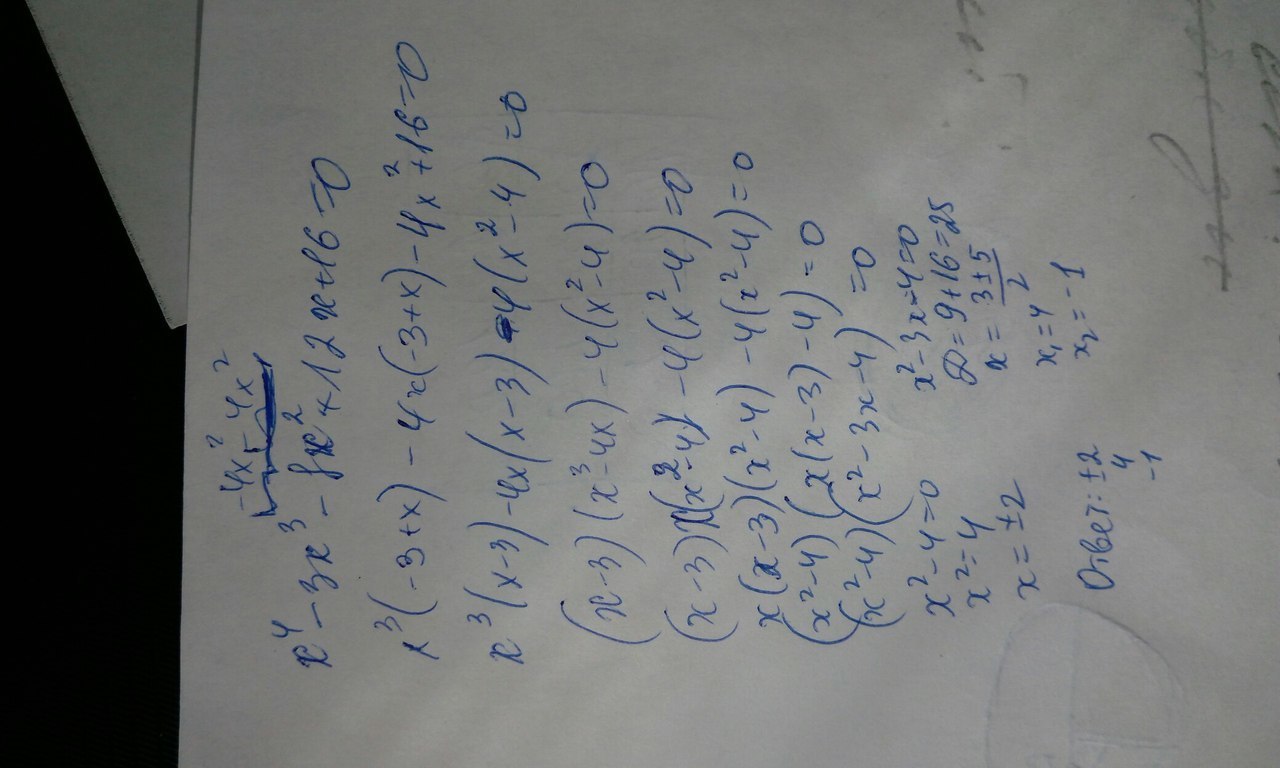 -4x² - 4x²
x⁴ - 3x³ - 8x² + 12x + 16 = 0
x³(-3+x) - 4x(-3+x) - 4x² + 16 = 0
x³(x-3) - 4x(x-3) - 4(x²-4) = 0
(x-3)(x³-4x) - 4(x²-4) = 0
(x-3)x(x²-4) - 4(x²-4) = 0
x(x-3)(x²-4) - 4(x²-4) = 0
(x²-4)(x(x-3)-4) = 0
(x²-4)(x²-3x-4) = 0
x²-4=0
x²=4
x=±2
x²-3x-4=0
D=9+16=25
x = 3±5/2
x₁=4
x₂=-1
Ответ: ±2
4
-1